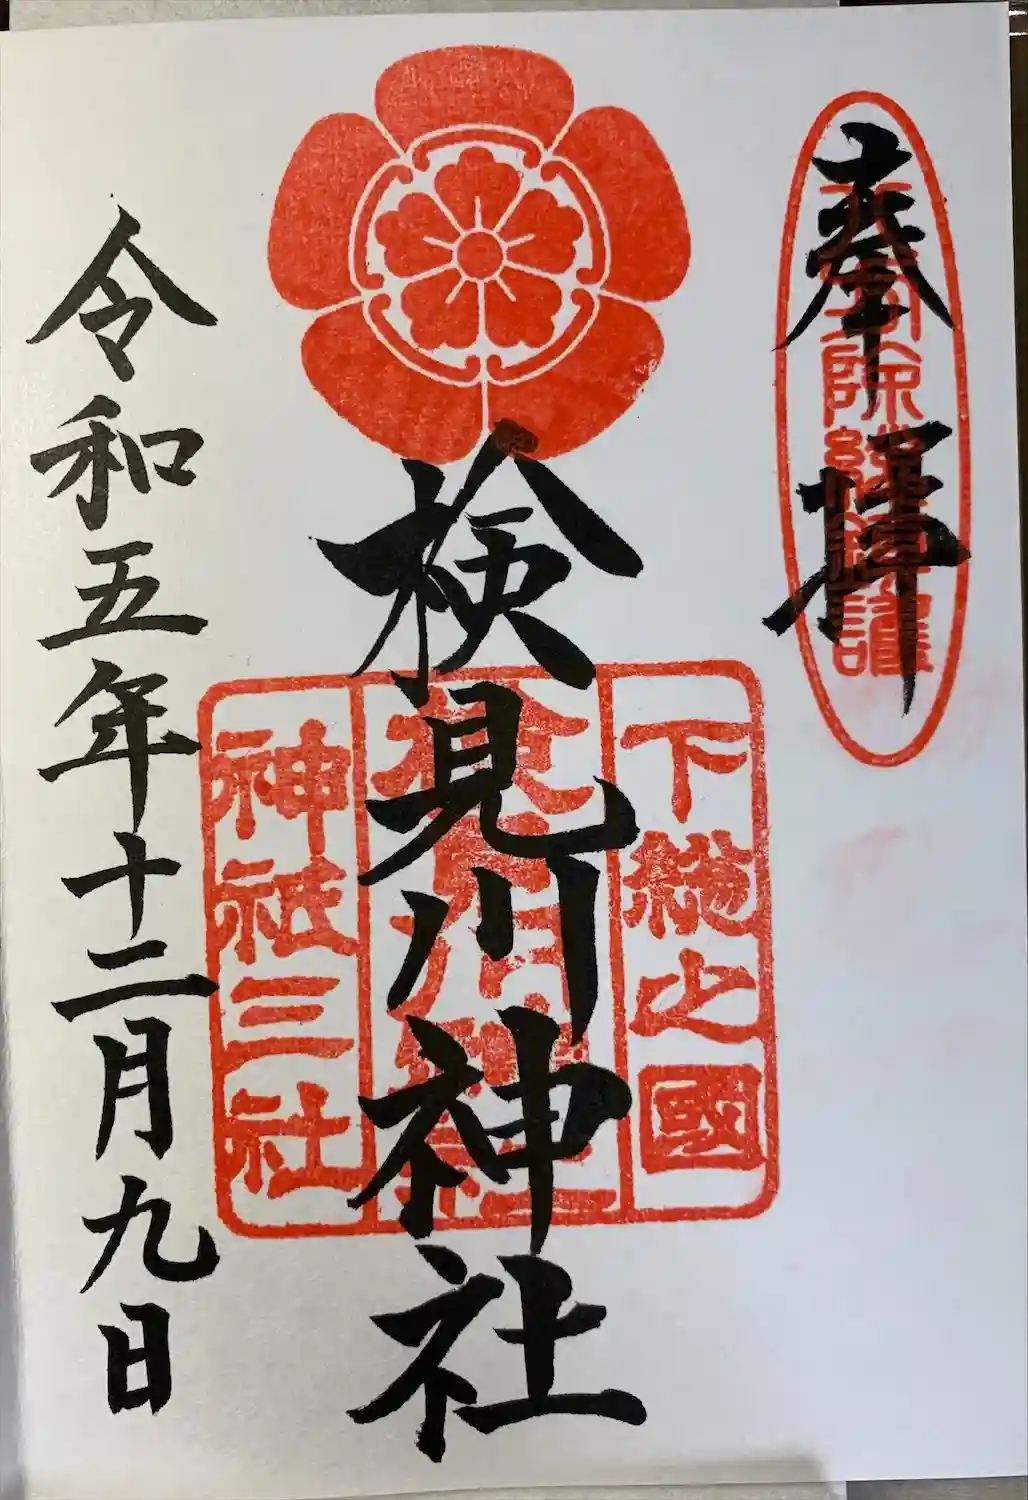 奉拝
八方除総鎮護
下総之國
検見川神社
検見川神社
神祇三社
令和五年十二月九日